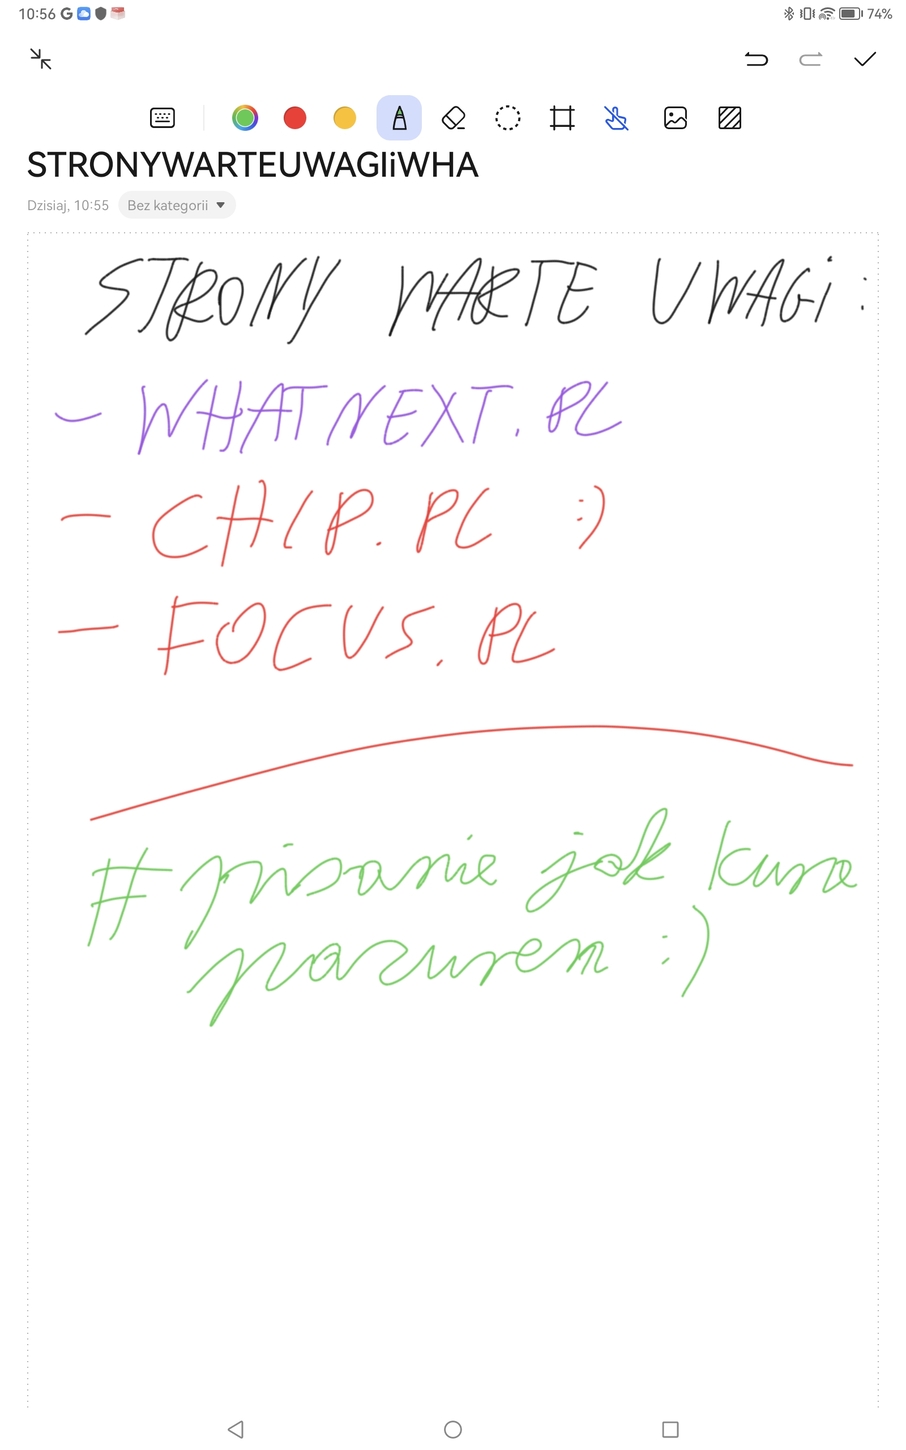 10:56 74%
STRONYWARTEUWAGIiWHA
Dzisiaj, 10:55 Bez kategorii
STRONY WARTE UWAGi:
- WHATNEXT.PL
- CHIP.PL :)
- FOCUS.PL
#pisanie jak kura
pazurem :)